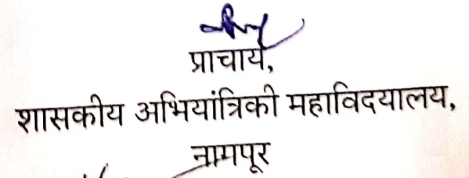 प्राचार्य,
शासकीय अभियांत्रिकी महाविदयालय,
नागपूर